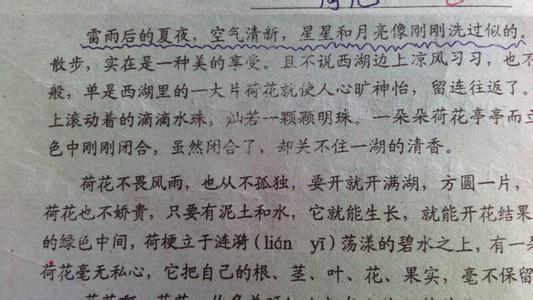 雷雨后的夏夜，空气清新，星星和月亮像刚刚洗过似的。
散步，实在是一种美的享受。且不说西湖边上凉风习习，也不
般，单是西湖里的一大片荷花就使人心旷神怡，留连往返了。
上滚动着的滴滴水珠，灿若一颗颗明珠。一朵朵荷花亭亭而立
色中刚刚闭合，虽然闭合了，却关不住一湖的清香。
荷花不畏风雨，也从不孤独，要开就开满湖，方圆一片，
荷花也不娇贵，只要有泥土和水，它就能生长，就能开花结果
的绿色中间，荷梗立于涟漪(lián yī)荡漾的碧水之上，有一
荷花毫无私心，它把自己的根、茎、叶、花、果实，毫不保留